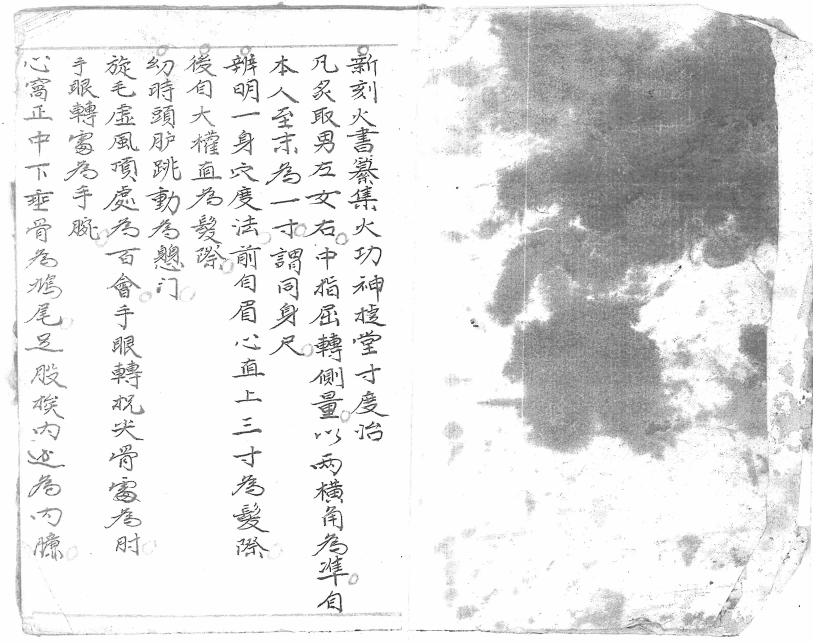 新刻火書纂集火功神樓堂寸度治
凡炙取男左女右中指屈轉側量以两横角為準自
本人至末為一寸謂同身尺
辨明一身穴度法前自眉心直上三寸為髮際
後自大權直為髮際
幻時頭胪跳動為顖门
旋毛虛風頂處為百會手眼轉枴尖骨處為肘
手眼轉處為手腕
心窩正中下垂骨為鳩尾足股挨内边為内臁